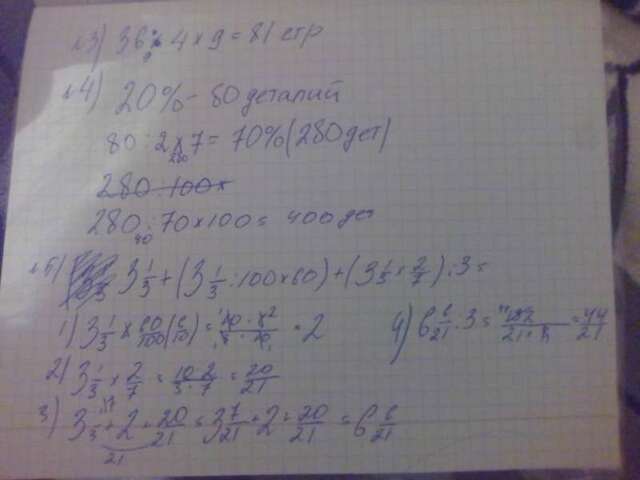 №3) 36 : 4 × 9 = 81 стр
№4) 20% - 80 деталий
80 : 2 × 7 = 70% (280 дет)
280 : 100 ×
280 : 70 × 100 = 400 дет
№5) 3 1/3 + (3 1/3 : 100 × 60) + (3 1/3 × 2/7) : 3 =
1) 3 1/3 × 60/100 (6/10) = = 2
4) 6 6/21 : 3 = = 44/21
2) 3 1/3 × 2/7 = 10·2/3·7 = 20/21
3) 3 1/3 + 2 + 20/21 = 3 7/21 + 2 + 20/21 = 6 6/21